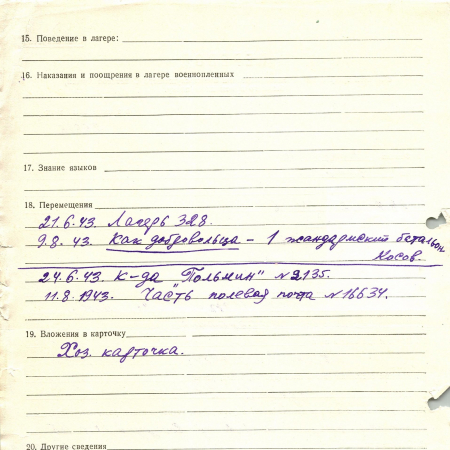 15. Поведение в лагере:
16. Наказания и поощрения в лагере военнопленных
17. Знание языков
18. Перемещения
21.6.43. Лагерь 328.
9.8.43. Как добровольца - 1 жандармский батальон
Косов.
24.6.43. К-да "Польмин" № 2135.
11.8.1943. Часть полевая почта № 16634.
19. Вложения в карточку
Хоз. карточка.
20. Другие сведения